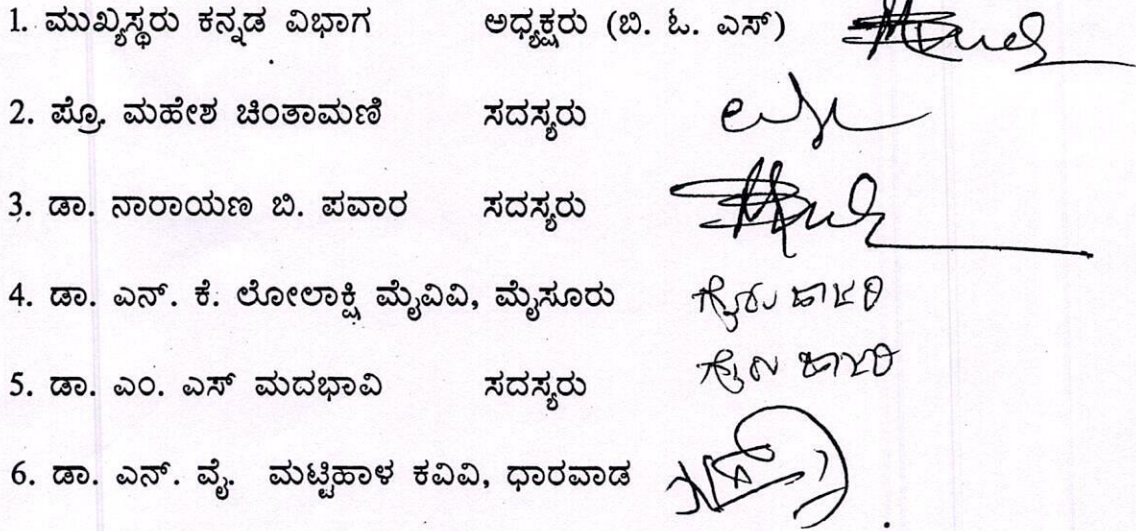 1. ಮುಖ್ಯಸ್ಥರು ಕನ್ನಡ ವಿಭಾಗ ಅಧ್ಯಕ್ಷರು (ಬಿ. ಓ. ಎಸ್)
2. ಪ್ರೊ. ಮಹೇಶ ಚಿಂತಾಮಣಿ ಸದಸ್ಯರು
3. ಡಾ. ನಾರಾಯಣ ಬಿ. ಪವಾರ ಸದಸ್ಯರು
4. ಡಾ. ಎನ್. ಕೆ. ಲೋಲಾಕ್ಷಿ ಮೈವಿವಿ, ಮೈಸೂರು ಗೈರು ಹಾಜರಿ
5. ಡಾ. ಎಂ. ಎಸ್ ಮದಭಾವಿ ಸದಸ್ಯರು ಗೈರು ಹಾಜರಿ
6. ಡಾ. ಎನ್. ವೈ. ಮಟ್ಟಿಹಾಳ ಕವಿವಿ, ಧಾರವಾಡ